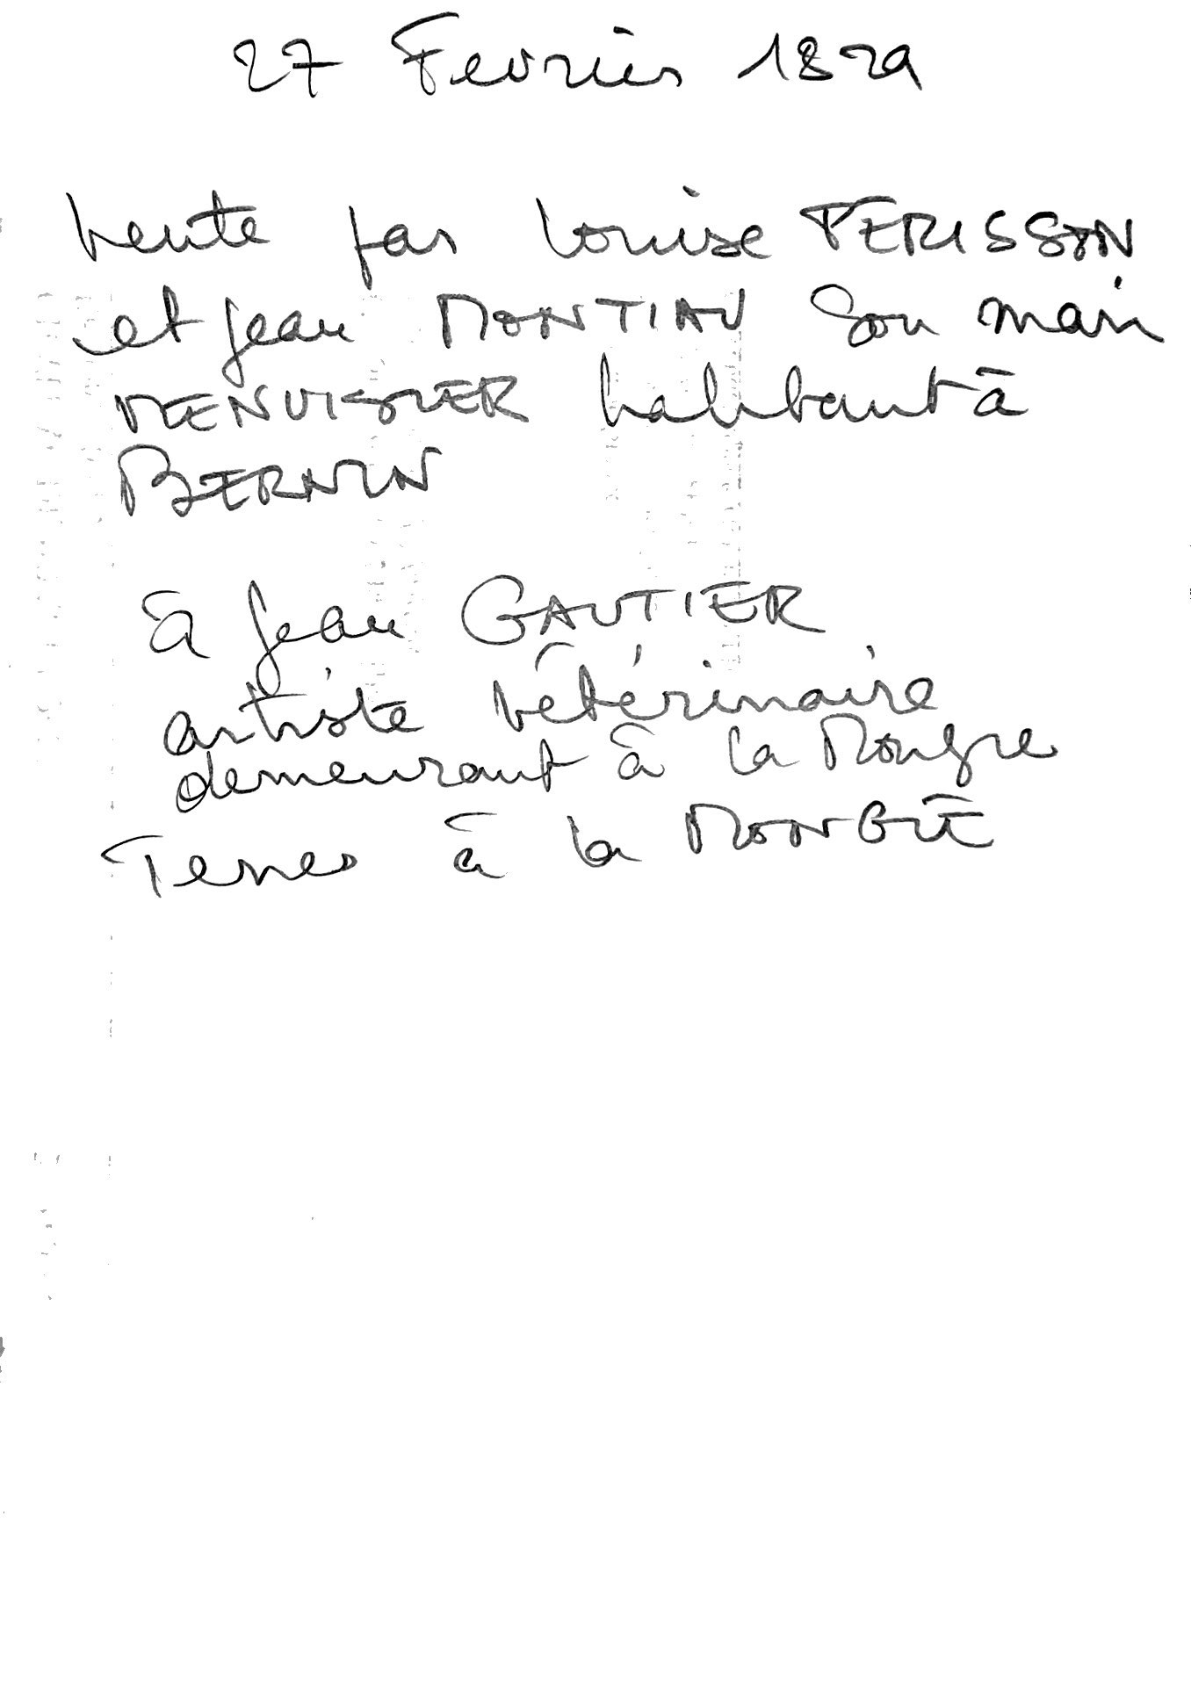 27 Fevrier 1829
Vente par Louise PERISSON
et Jean MONTIAU son mari
MENUISIER habitant à
BERNIN
à Jean GAUTIER
artiste vétérinaire
demeurant à la Mongie
Terres à la MONGIE